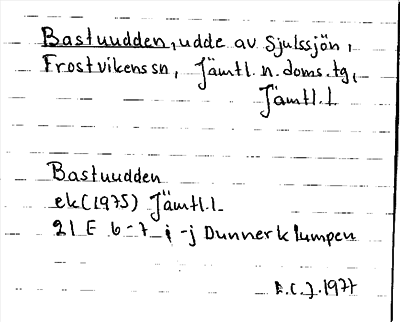 Bastuudden, udde av Sjulssjön,
Frostvikens sn, Jämtl. n. doms. tg,
Jämtl. l
Bastuudden
ek (1975) Jämtl. l.
21 E 6-7 i-j Dunnerklumpen
B.C.J. 1977